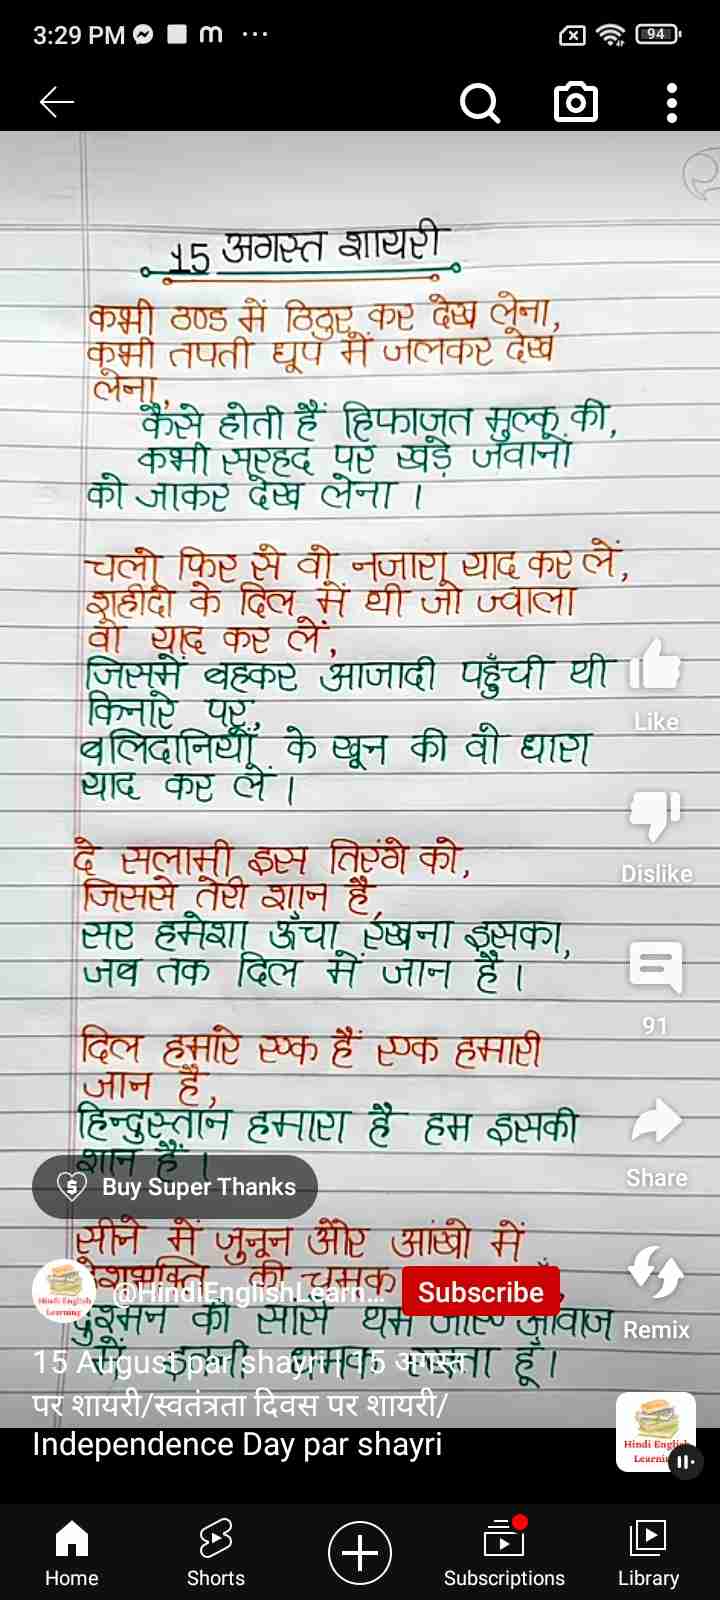 3:29 PM
94
15 अगस्त शायरी
कभी ठण्ड में ठिठुर कर देख लेना,
कभी तपती धूप में जलकर देख
लेना,
कैसे होती हैं हिफाजत मुल्क की,
कभी सरहद पर खड़े जवानों
को जाकर देख लेना ।
चलो फिर से वो नजारा याद कर लें,
शहीदो के दिल में थी जो ज्वाला
वो याद कर लें,
जिसमें बहकर आजादी पहुँची थी
किनारे पर,
बलिदानियों के खून की वो धारा
याद कर लें ।
दे सलामी इस तिरंगे को,
जिससे तेरी शान है,
सर हमेशा ऊँचा रखना इसका,
जब तक दिल में जान है ।
दिल हमारे एक हैं एक हमारी
जान है,
हिन्दुस्तान हमारा है हम इसकी
शान हैं ।
सीने में जुनून और आंखो में
देशभक्ति की चमक
दुश्मन की सांसे थम जाए आवाज
में इतनी धमक रखता हूँ ।
Like
Dislike
91
Share
Remix
Buy Super Thanks
@HindiEnglishLearn...
Subscribe
15 August par shayri/15 अगस्त
पर शायरी/स्वतंत्रता दिवस पर शायरी/
Independence Day par shayri
Hindi English
Learning
Home
Shorts
Subscriptions
Library